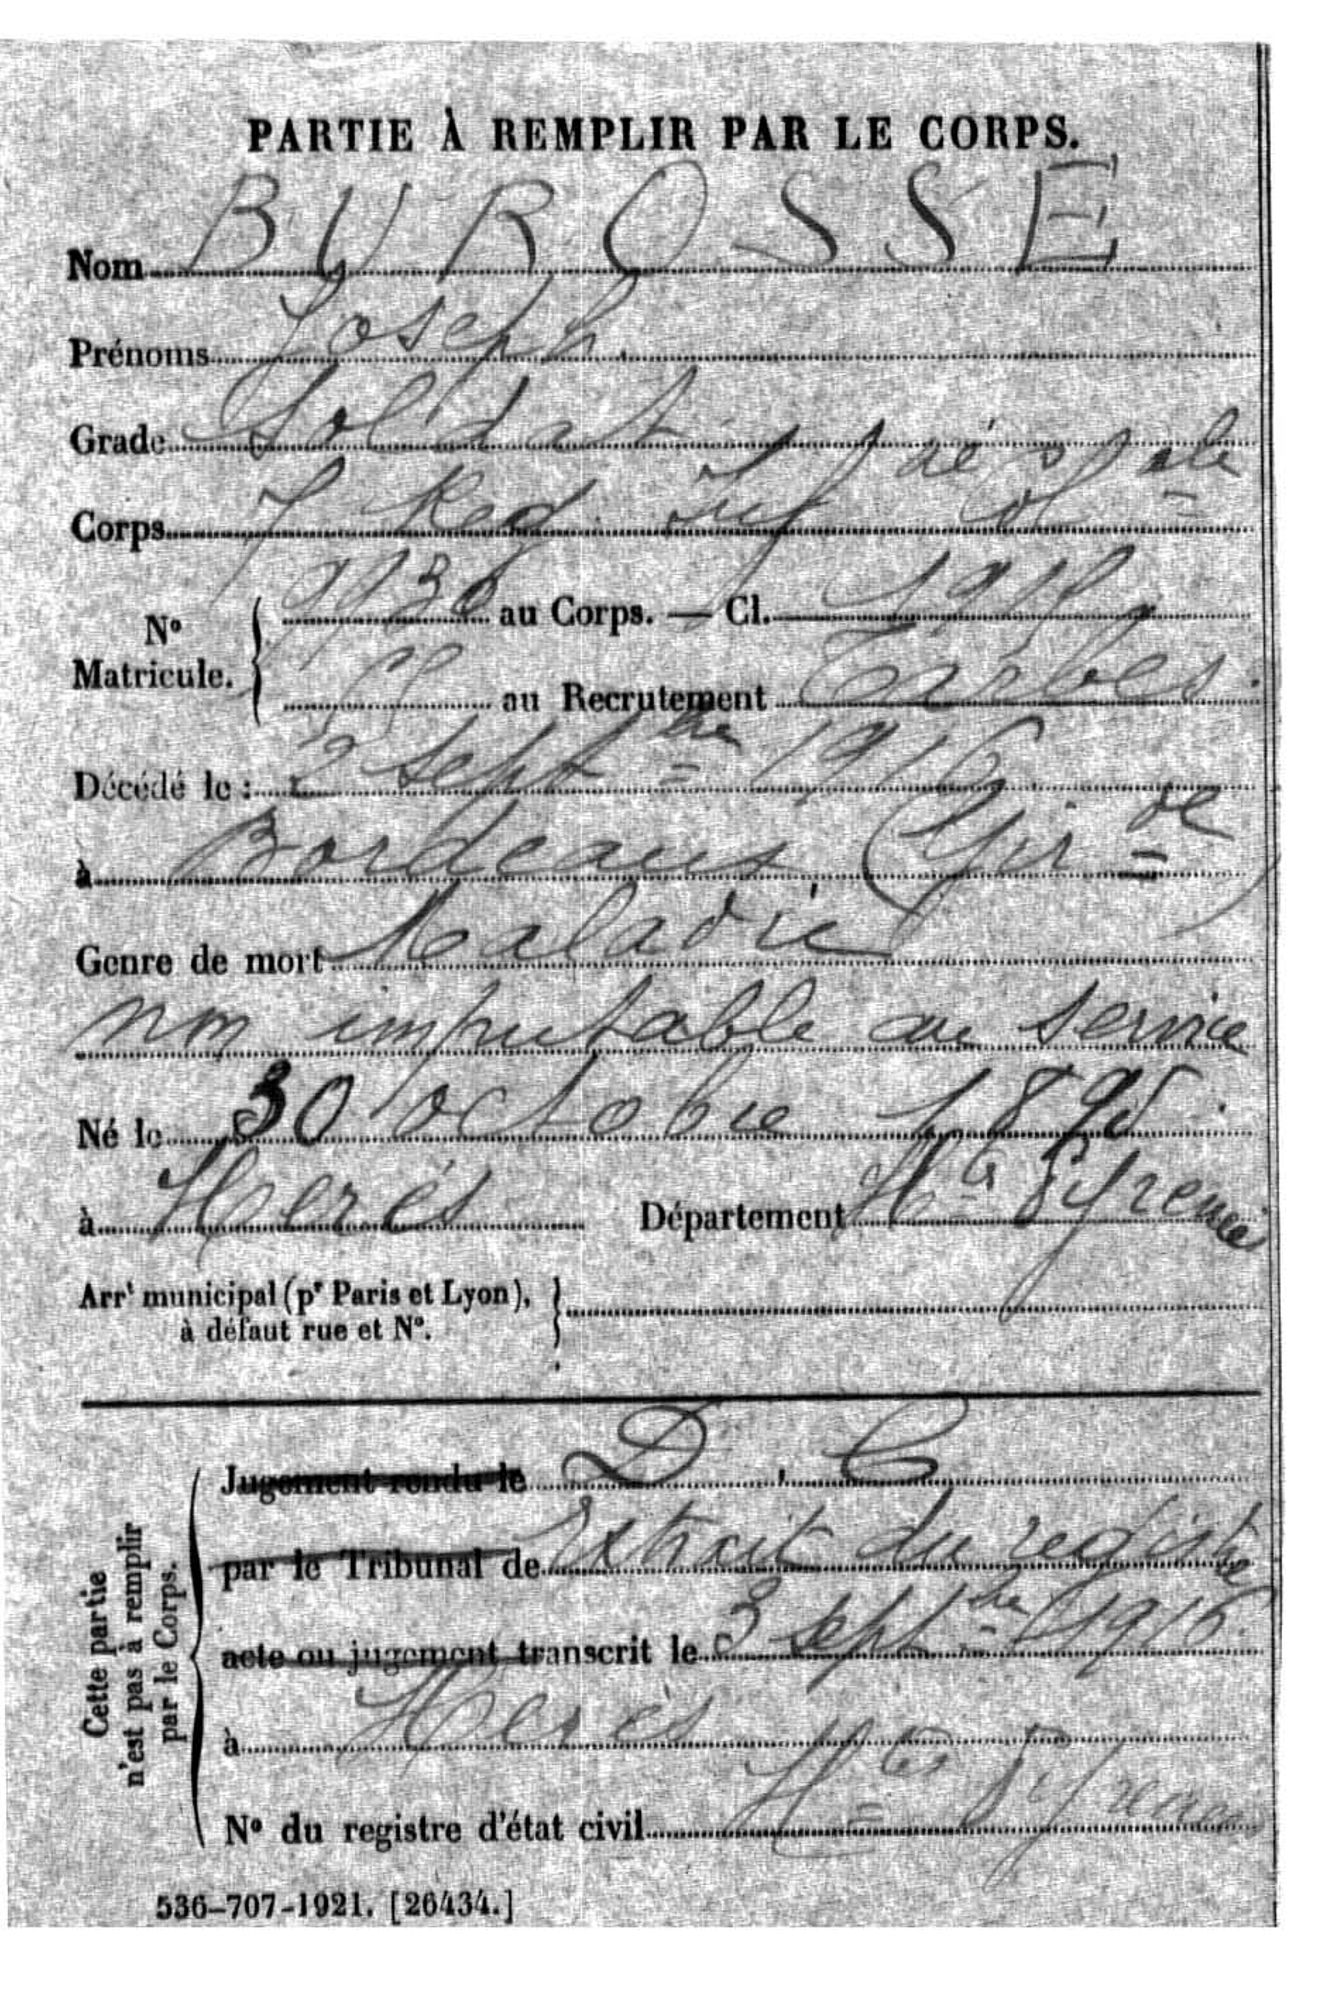 PARTIE À REMPLIR PAR LE CORPS.
Nom BUROSSE
Prénoms Joseph.
Grade Soldat
Corps 7 Reg. Inf col ale
N° Matricule. 9930 au Corps. — Cl. 1915
au Recrutement Tarbes.
Décédé le : 2 septbre 1916
à Bordeaux (Girde)
Genre de mort Maladie
non imputable au service
Né le 30 octobre 1895
à Herés Département Htes Pyrenees
Arrt municipal (pr Paris et Lyon),
à défaut rue et N°.
Cette partie
n'est pas à remplir
par le Corps.
Jugement rendu le D. C
par le Tribunal de Extrait du registre
acte ou jugement transcrit le 3 septbre 1916.
à Herés
N° du registre d'état civil Htes Pyrenees
536-707-1921. [26434.]